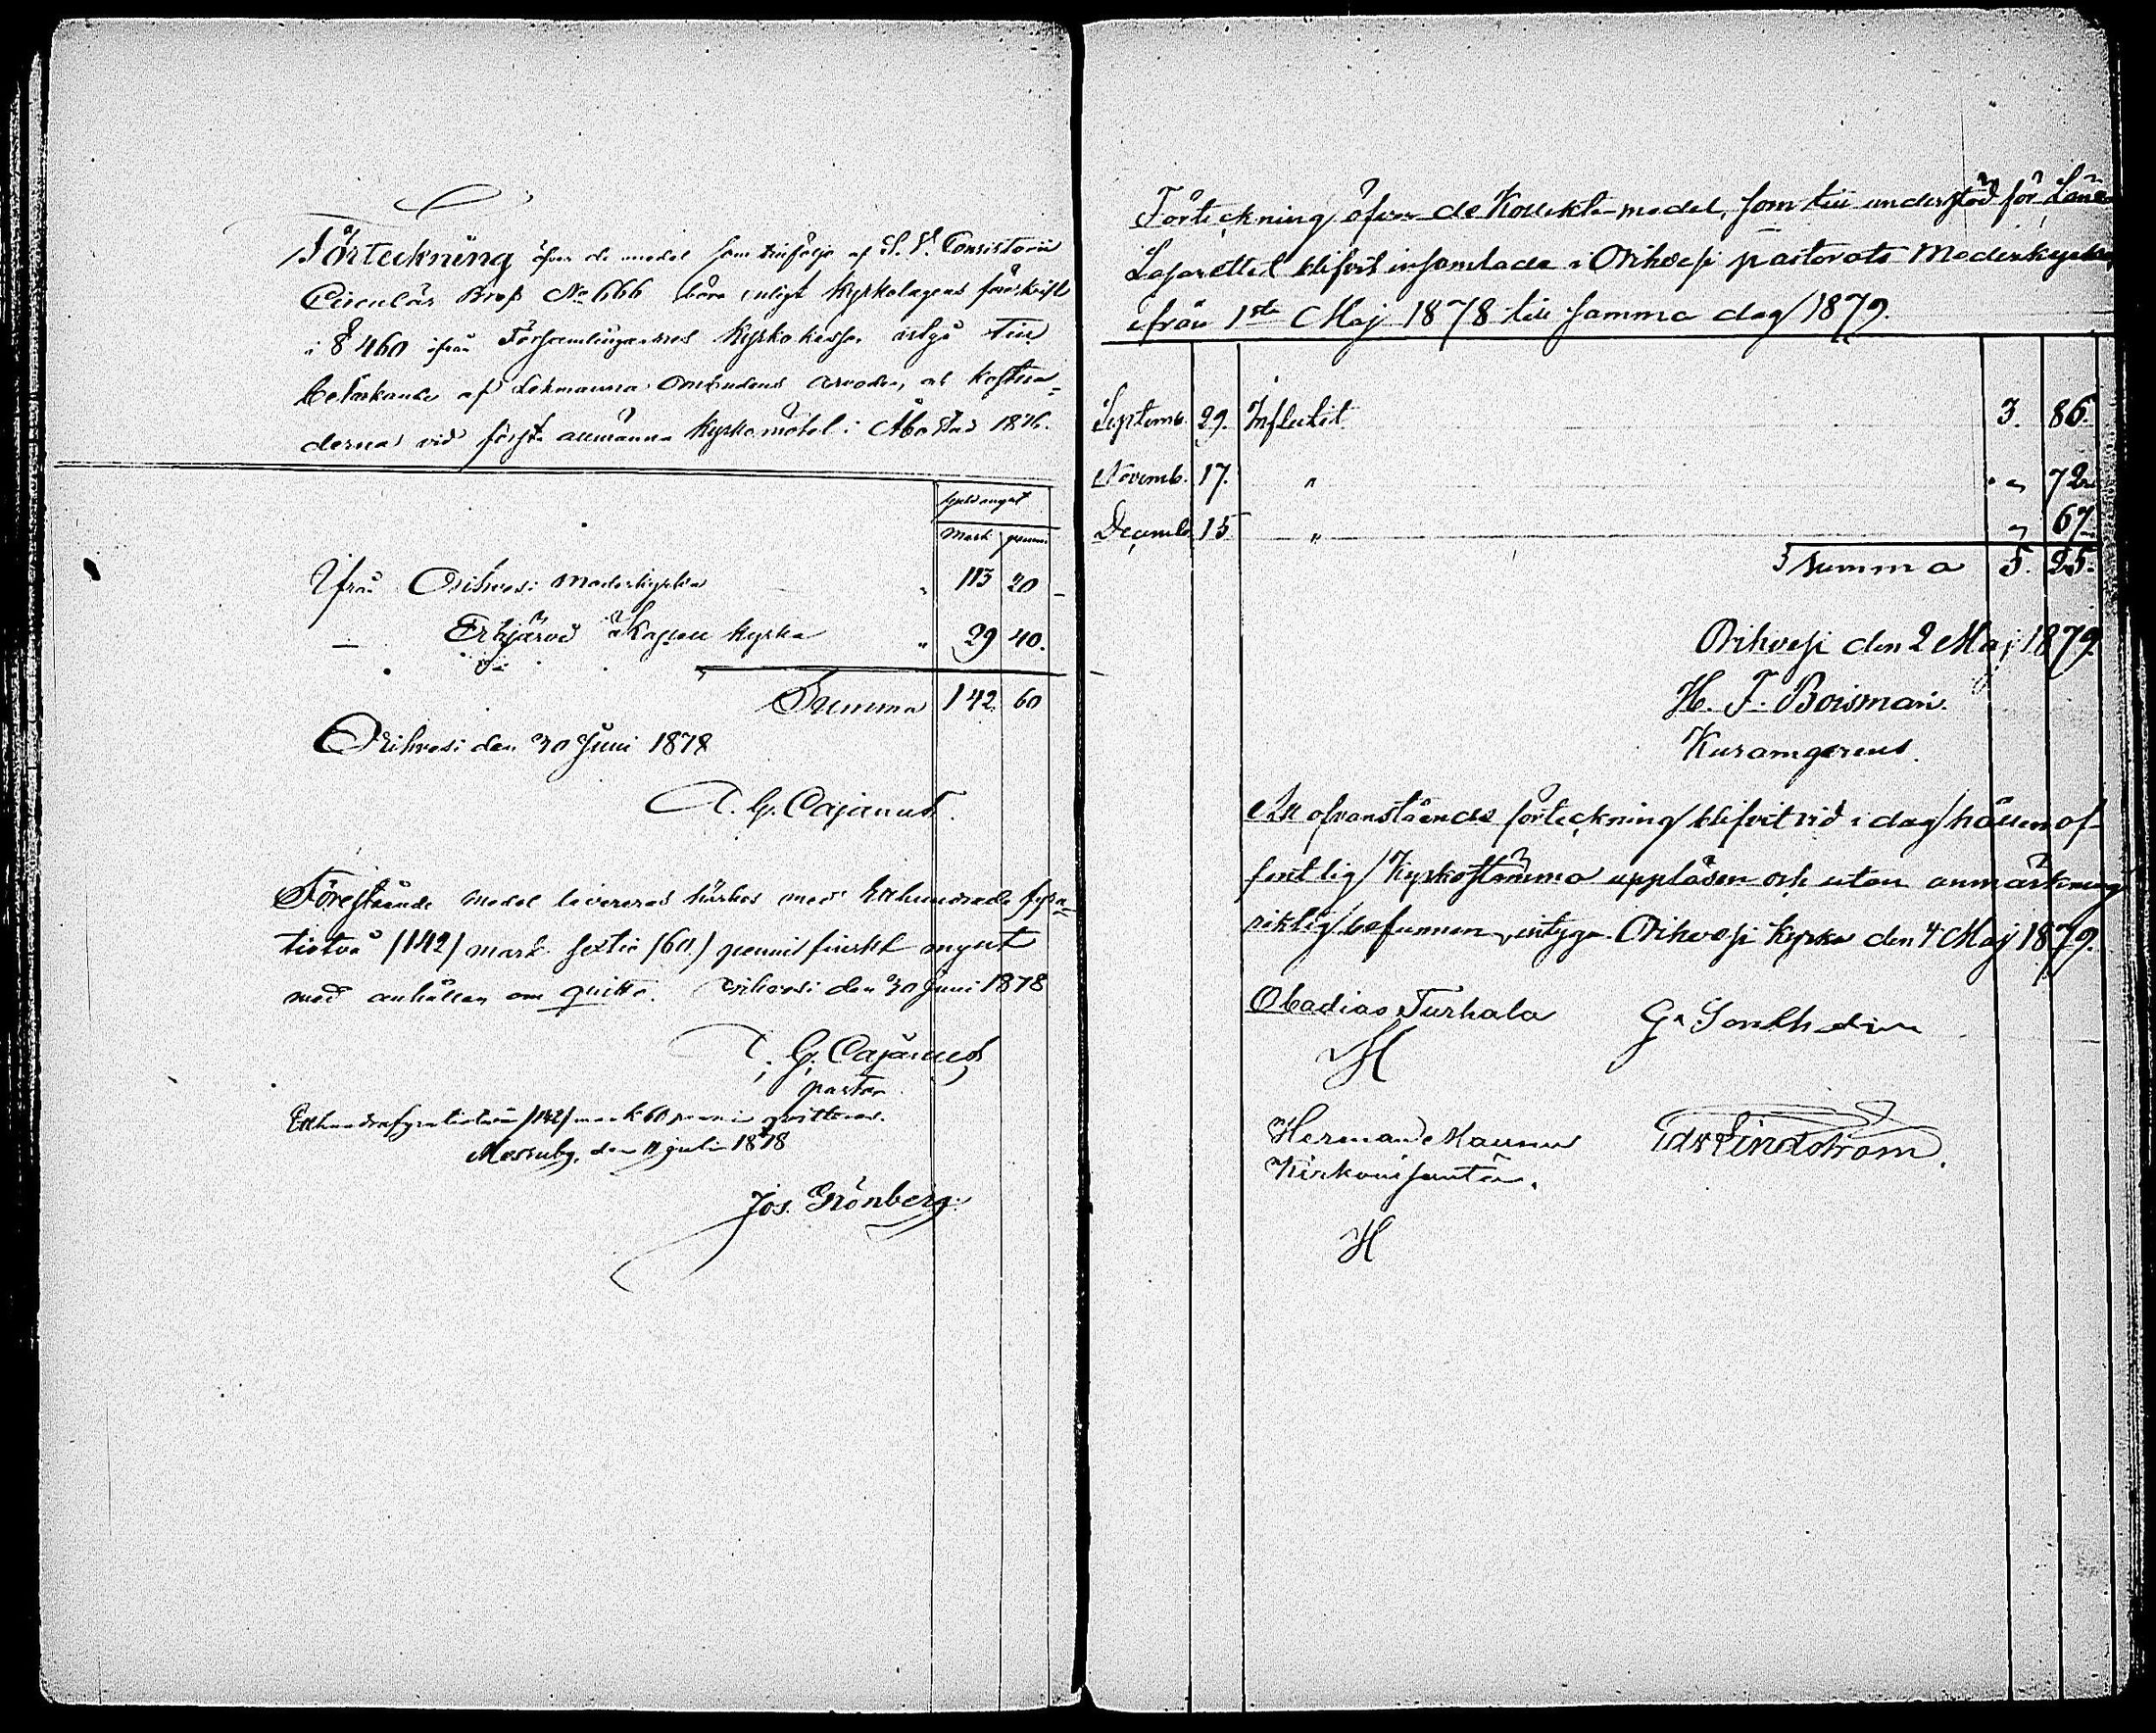 Förteckning öfver de medel som tillfölje af S. V. Consistorii
Circulär Bref No 666 böra enligt Kyrkolagens föreskrift
i § 460 ifrån Församlingarnes Kyrkokassor utgå till
betäckande af Lekmanna Ombudens arvoden, och kostna-
derna vid första allmänna Kyrkomötet i Åbo stad 1876.
Mark penni
Ifrån Orihvesi Moderkyrka " 113 20
— Erhjärvi Kapell kyrka " 29 40.
Summa 142 60
Orihvesi den 30 Juni 1878
A. G. Cajanus.
Förestående medel levereras härhos med Etthundrade fyra-
tiotvå /142/ mark sextio /60/ penni finskt mynt
med anhållan om quitto. Orihvesi den 30 Juni 1878
A. G. Cajanus
pastor
Etthundrafyratiotvå /142/ mark 60 penni qvitteras.
den 11 Juli 1878
Jos. Grönberg.
Förteckning öfver de Kollekt-medel, som till understöd för Läns
Lasarettet blifvit insamlade i Orihvesi pastorats Moderkyrka,
ifrån 1sta Maj 1878 till samma dag 1879.
Septemb. 29. Influtit 3. 86.
Novemb. 17. " " 72
Decemb. 15 " " 67
Summa 5. 25.
Orihvesi den 2 Maj 1879.
H. F. Boisman.
Kuramgerens.
Att ofvanstående förteckning blifvit vid i dag hållen of-
fentlig Kyrkostämma uppläsen och utan anmärkning
riktig befunnen, intyga. Orihvesi Kyrka den 4 Maj 1879.
Obadias Turhala G.
H
Herman Maunus Edv Lindstrom.
Kirkonisäntä.
H